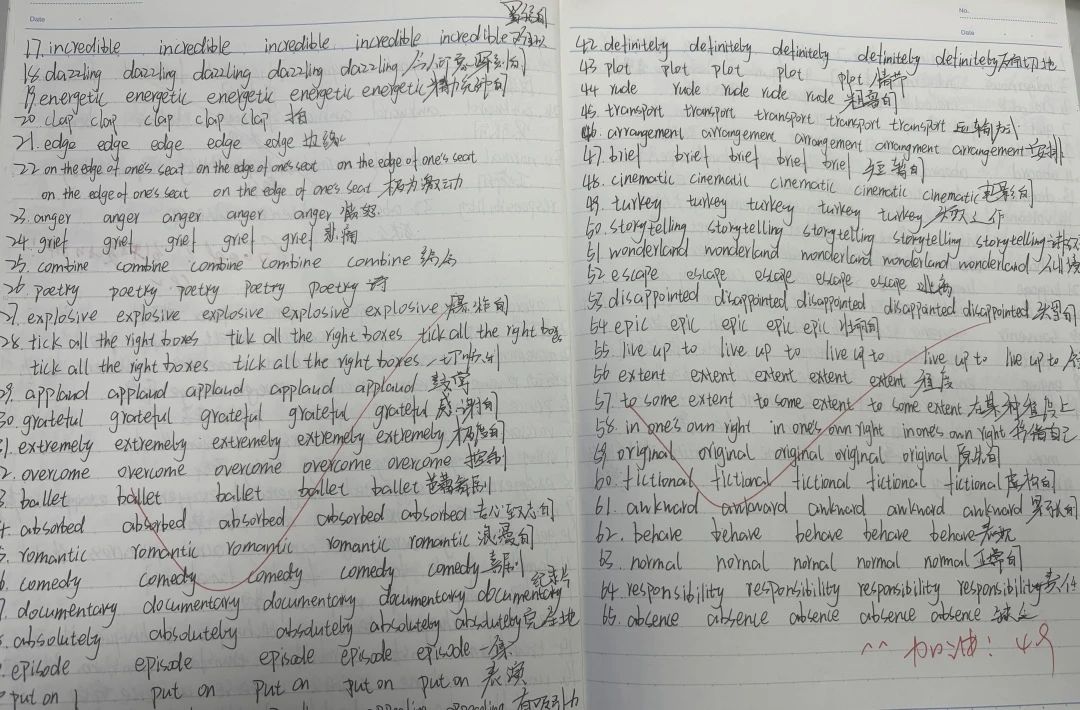 Date
17. incredible incredible incredible incredible incredible
18. dazzling dazzling dazzling dazzling dazzling
19. energetic energetic energetic energetic energetic
20 clap clap clap clap clap 拍
21. edge edge edge edge edge 边缘
22 on the edge of one's seat on the edge of one's seat on the edge of one's seat
on the edge of one's seat on the edge of one's seat 极为激动
23. anger anger anger anger anger 愤怒
24. grief grief grief grief grief 悲痛
25. combine combine combine combine combine 结合
26. poetry poetry poetry poetry poetry 诗
27. explosive explosive explosive explosive explosive 爆炸的
28. tick all the right boxes tick all the right boxes tick all the right boxes
tick all the right boxes tick all the right boxes 一切顺利
29. applaud applaud applaud applaud applaud 鼓掌
30. grateful grateful grateful grateful grateful 感谢的
31. extremely extremely extremely extremely extremely 极度的
2. overcome overcome overcome overcome overcome 控制
3. ballet ballet ballet ballet ballet 芭蕾舞剧
4. absorbed absorbed absorbed absorbed absorbed
5. romantic romantic romantic romantic romantic 浪漫的
6. comedy comedy comedy comedy comedy 喜剧
7. documentary documentary documentary documentary documentary 纪录片
8. absolutely absolutely absolutely absolutely absolutely 完全地
episode episode episode episode episode 一集
put on put on put on put on put on 表演
有吸引力
No.
Date
42. definitely definitely definitely definitely definitely 确切地
43 plot plot plot plot plot 情节
44 rude rude rude rude rude 粗鲁的
45. transport transport transport transport transport 运输方式
46. arrangement arrangement arrangement arrangment arrangement 安排
47. brief brief brief brief brief 短暂的
48. cinematic cinematic cinematic cinematic cinematic 电影的
49. turkey turkey turkey turkey turkey 失败之作
50. storytelling storytelling storytelling storytelling storytelling
51 wonderland wonderland wonderland wonderland wonderland
52 escape escape escape escape escape 逃离
53. disappointed disappointed disappointed disappointed disappointed 失望的
54 epic epic epic epic epic 壮阔的
55. live up to live up to live up to live up to live up to
56 extent extent extent extent extent 程度
57. to some extent to some extent to some extent 在某种程度上
58. in one's own right in one's own right in one's own right 凭借自己
59 original original original original original 原先的
60. fictional fictional fictional fictional fictional 虚构的
61. awkward awkward awkward awkward awkward
62. behave behave behave behave behave 表现
63. normal normal normal normal normal 正常的
64. responsibility responsibility responsibility responsibility 责任
65. absence absence absence absence absence 缺乏
^^ 加油! 4.9